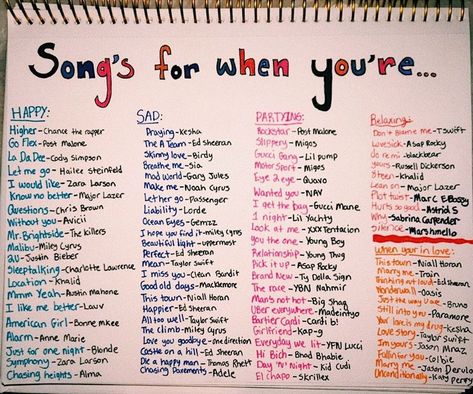 Song's for when you're...
HAPPY:
Higher-Chance the rapper
Go Flex-Post malone
La Da Dee-Cody Simpson
Let me go-Hailee Steinfeld
I would like-Zara Larson
Know no better-Major Lazer
Questions-Chris Brown
Without you-Avicii
Mr. Brightside-The killers
Malibu-Miley Cyrus
2U-Justin Bieber
Sleeptalking-Charlotte Lawrence
Location-Khalid
Mmm Yeah-Austin mahone
I like me better-Lauv
American Girl-Bonne mckee
Alarm-Anne Marie
Just for one night-Blonde
Symphony-Zara Larson
Chasing heights-Alma
SAD:
Praying-Kesha
The A Team-Ed sheeran
Skinny love-Birdy
Breathe me-Sia
Mad world-Gary Jules
Make me-Noah Cyrus
Let her go-Passenger
Liability-Lorde
Ocean Eyes-Gemzz
I hope you find it-miley Cyrus
Beautiful light-uppermost
Perfect-Ed sheeran
Mean-Taylor Swift
I miss you-Clean Bandit
Good old days-Macklemore
This town-Niall Horan
Happier-Ed Sheeran
All too well-Taylor Swift
The climb-Miley Cyrus
Love you goodbye-One direction
Castle on a hill-Ed Sheeran
Die a happy man-Thomas Rhett
Chasing Pavements-Adele
PARTYING:
Rockstar-Post Malone
Slippery-Migos
Gucci Gang-Lil pump
MotorSport-Migos
Eye 2 eye-Quavo
Wanted you-NAV
I get the bag-Gucci Mane
1 night-Lil Yachty
Look at me-XXXTentacion
You the one-Young Boy
Relationship-Young Thug
Pick it up-Asap Rocky
Brand New-Ty Dolla $ign
The rare-YBN Nahmir
Man's not hot-Big Shaq
Uber everywhere-Madeintyo
Bartier Cardi-Cardi b!
Girlfriend-Kap-g
Everyday we lit-YFN Lucci
Hi Bich-Bhad Bhabie
Day 'N' Night-Kid Cudi
El chapo-Skrillex
Relaxing:
Don't Blame me-T Swift
Lvesick-Asap Rocky
do re mi-blackbear
yours-Russell Dickerson
8teen-Khalid
Lean on-Major Lazer
Plot twist-Marc E Bassy
Hurts so good-Astrid S
Why-Sabrina Carpenter
Silence-Marshmello
When your in Love:
This town-Niall Horan
Marry me-Train
Hunting out loud-Ed Sheeran
Wonderwall-Oasis
Just the way U are-Bruno
Still into you-Paramore
Your love is my drug-kesha
Love story-Taylor Swift
Im yours-Jason Mraz
Fallin for you-Colbie
Marry me-Jason Derulo
Unconditionally-Katy Perry